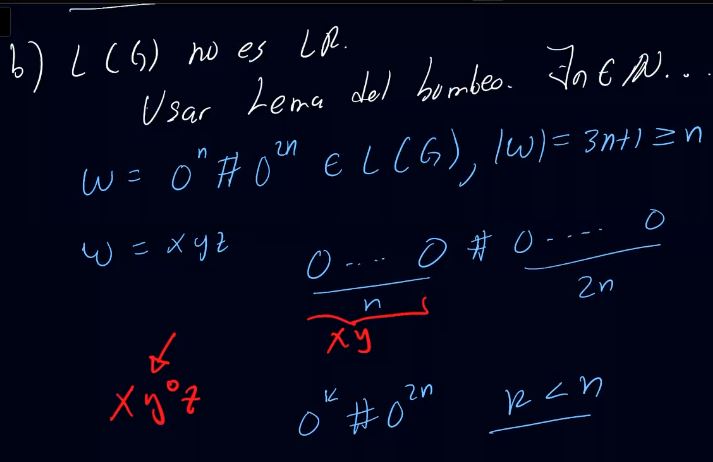 b) L(G) no es LR.
Usar Lema del bombeo. ∃n∈ℕ...
w = 0ⁿ#0²ⁿ ∈ L(G), |w| = 3n+1 ≥ n
w = xyz 0 .... 0 # 0 ..... 0
n 2n
xy
xy⁰z 0ᵏ#0²ⁿ k < n